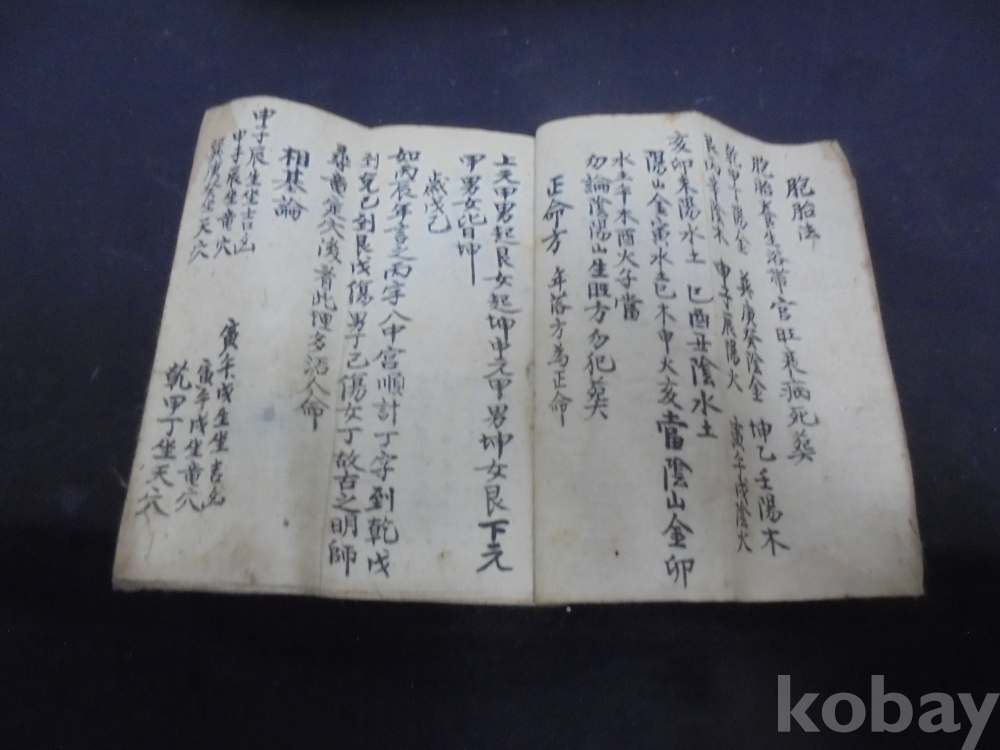 胞胎法
胞胎養生浴帶官旺衰病死葬
乾甲丁陽金 巽庚癸陰金 坤乙壬陽木
艮丙辛陰木 申子辰陽火 寅午戌陰火
亥卯未陽水土 巳酉丑陰水土
陽山金寅水土巳木申火亥當陰山金卯
水土午木酉火子當
勿論陰陽山生旺方勿犯葬
正命方 年落方為正命
上元甲男起艮女起坤中元甲男坤女艮下元
甲男女皆坤
歲戊己
如丙辰年言之丙字入中宮順計丁字到乾戊
到兌己到艮戊傷男子己傷女丁故古之明師
此理多活人命
相基論
申子辰生坐吉凶
申子辰坐竜穴
巽庚癸坐天穴
寅午戌生坐吉凶
寅午戌坐竜穴
乾甲丁坐天穴
kobay